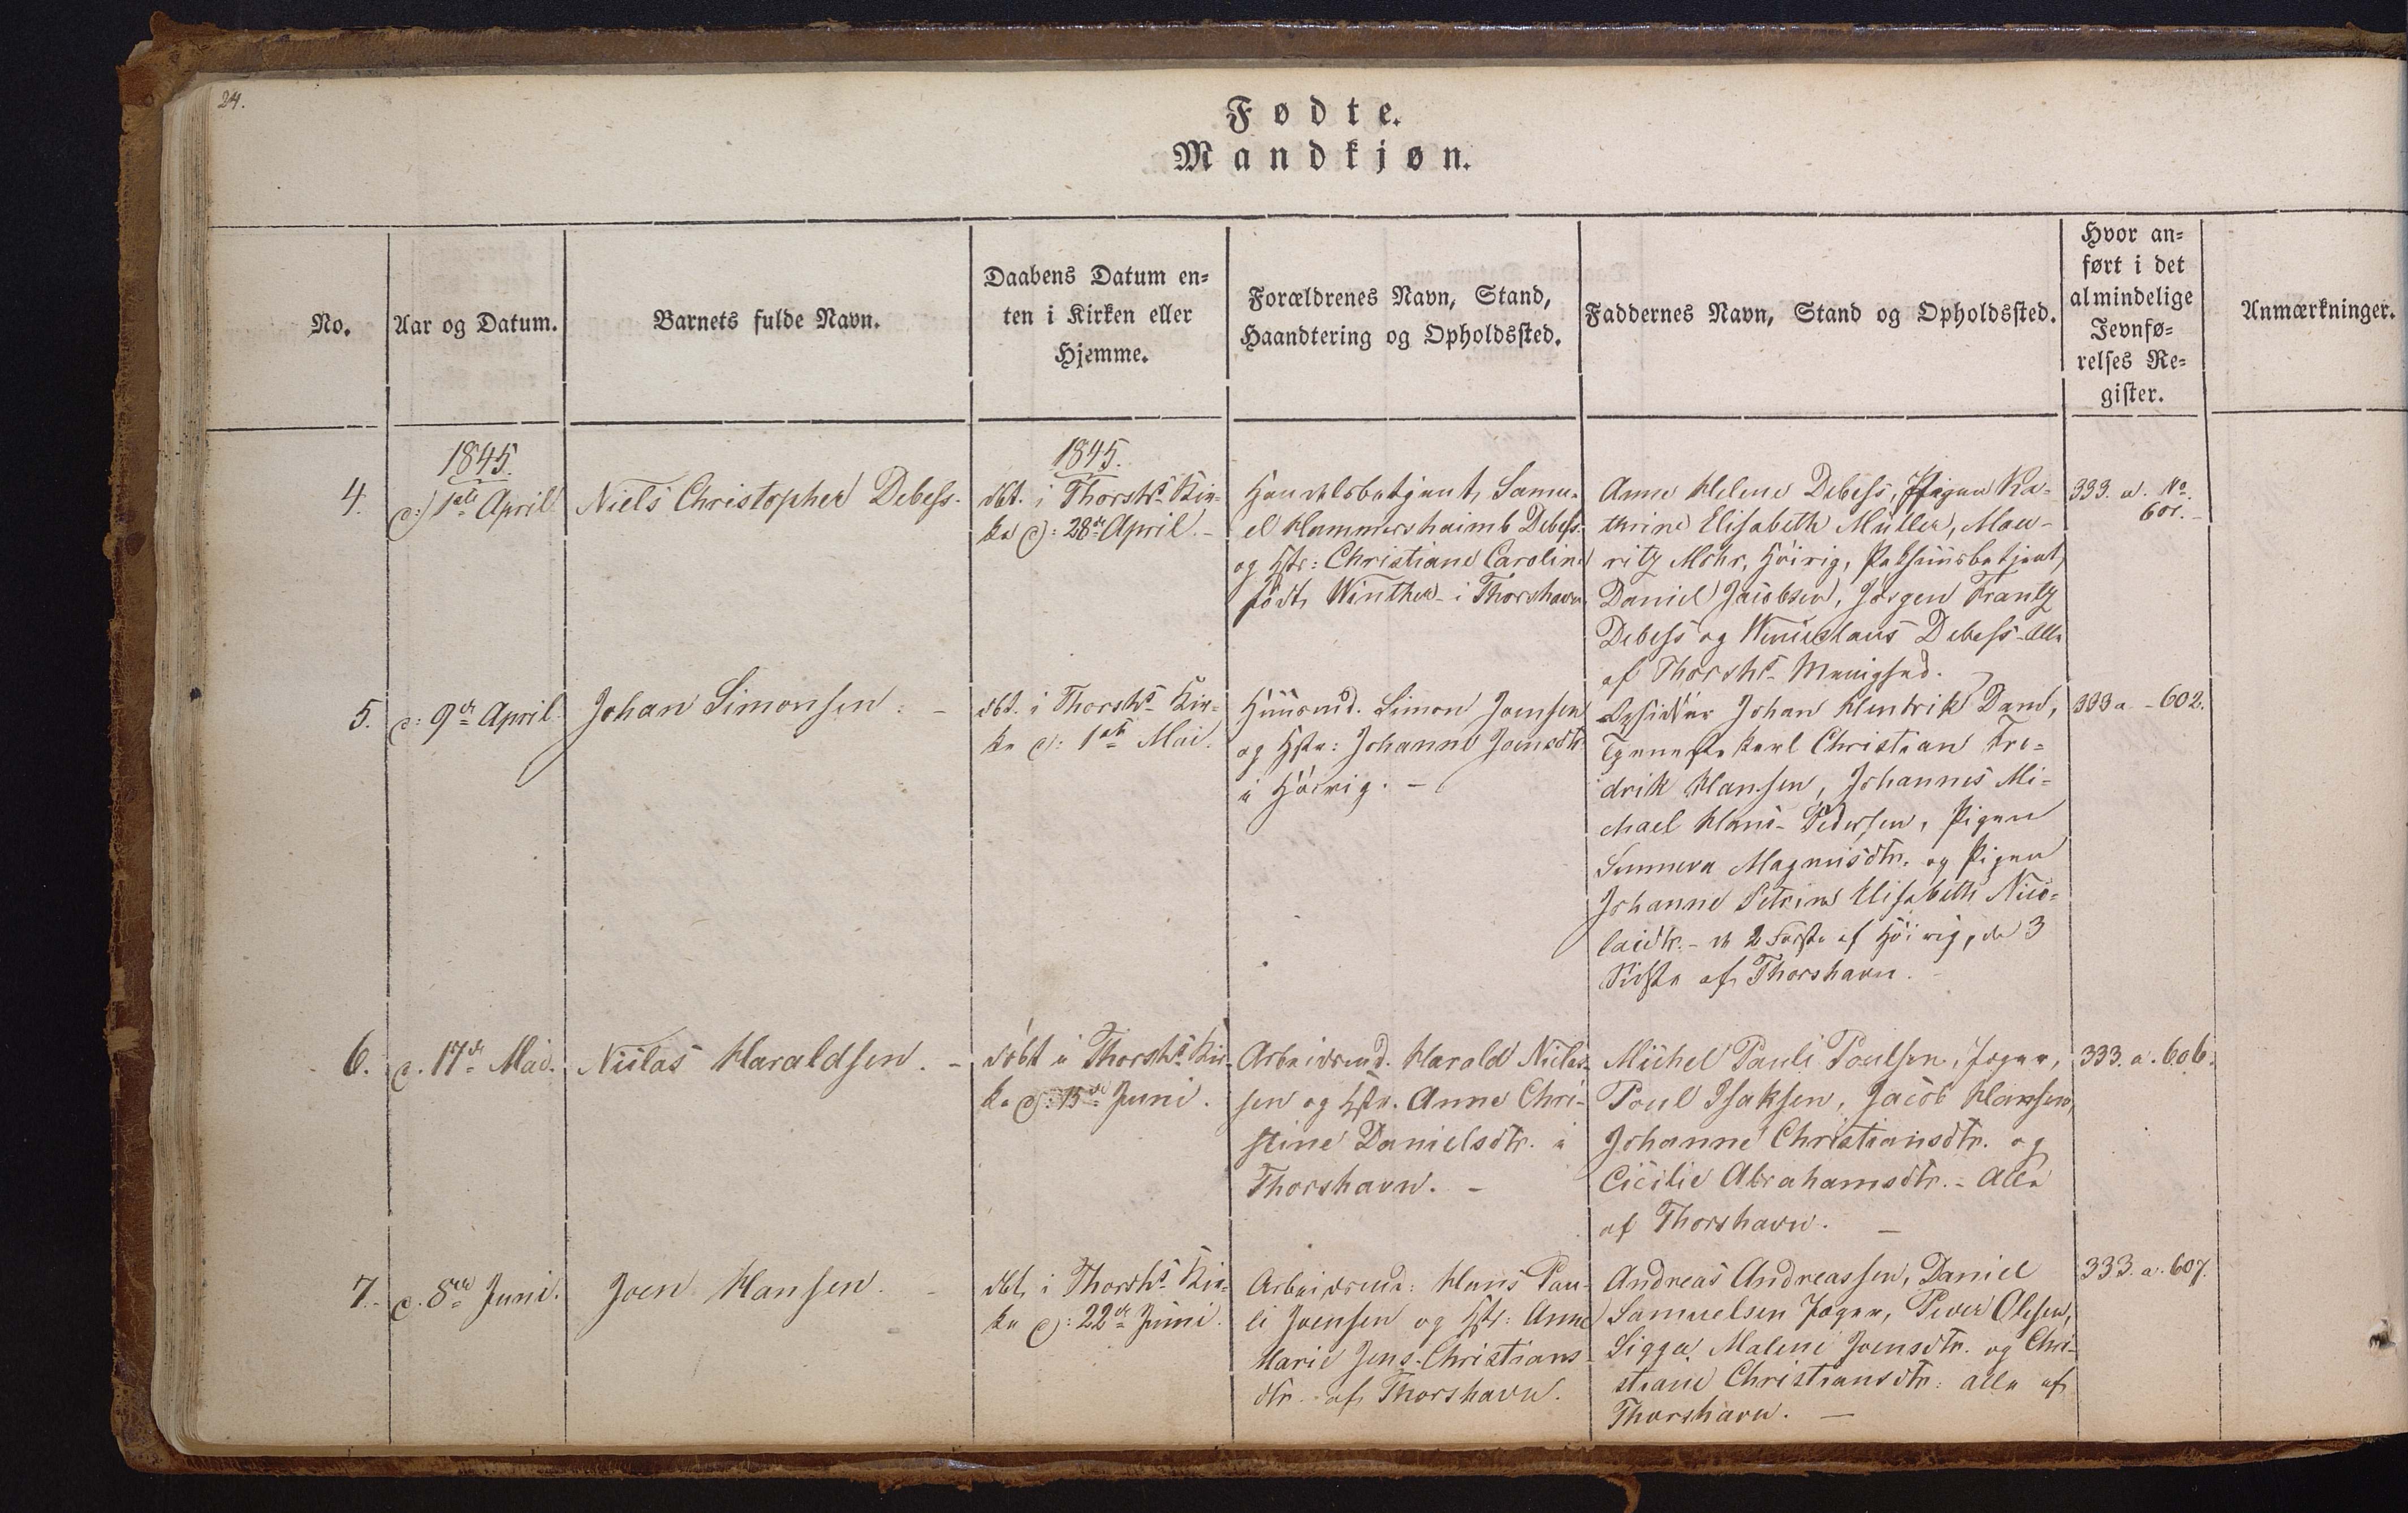 24.
Fødte.
Mandkjøn.
No.
Aar og Datum.
Barnets fulde Navn.
Daabens Datum en-
ten i Kirken eller
Hjemme.
Forældrenes Navn, Stand,
Haandtering og Opholdssted.
Faddernes Navn, Stand og Opholdssted.
Hvor an-
ført i det
almindelige
Jevnfø-
relses Re-
gister.
Anmærkninger.
4.
1845.
d: 1ste April
Niels Christopher Debess.
1845.
dbt. i Thorshs Kir-
ke d: 28de April.-
Handelsbetjent, Samu-
el Hammershaimb Debess.
og Hstr: Christiane Caroline
født Winther i Thorshavn
Anne Helene Debess, Pigen Ka-
thrine Elisabeth Müller, Mau-
ritz Mohr, Höivig, Pakhuusbetjent
Daniel Jacobsen, Jørgen Frantz
Debess og Debess - Alle
af Thorshs Menighed.
333. a. No.
601.-
5.
d: 9de April
Johan Simonsen. -
dbt. i Thorshs Kir-
ke d: 1ste Mai.
Huusmd. Simon Joensen
og Hstr: Johanne Joensdtr.
i Höivig. -
Opsidder Johan Hendrik Dam,
Tjenestekarl Christian Fre-
drik Hansen, Johannes Mi-
chael Hans-Pedersen, Pigen
Sunneva Magnusdtr. og Pigen
Johanne Petrine Elisabeth Nico-
laidtr. - de 2 Første af Höivig, de 3
Sidste af Thorshavn. -
333 a - 602.
6.
d. 17de Mai.
Niclas Haraldsen. -
döbt i Thorshs Kir-
ke d: 15de Juni.
Arbeidsmd. Harald Niclas-
sen og Hstr. Anne Chri-
stine Danielsdtr. i
Thorshavn. -
Michel Pauli Poulsen, Jæger,
Poul Isaksen, Jacob Hansen,
Johanne Christiansdtr. og
Cicilie Abrahamsdtr. - Alle
af Thorshavn. -
333. a. 606.
7.
d. 8de Juni.
Joen Hansen. -
dbt. i Thorshs Kir-
ke d: 22de Juni.
Arbeidsmd: Hans Pau-
li Joensen og Hstr: Anne
Marie Jens-Christians-
dtr. af Thorshavn.
Andreas Andreassen, Daniel
Samuelsen Jæger, Olesen,
Sigga Malene Joensdtr. og Chri-
stiane Christiansdtr: alle af
Thorshavn. -
333. a. 607.